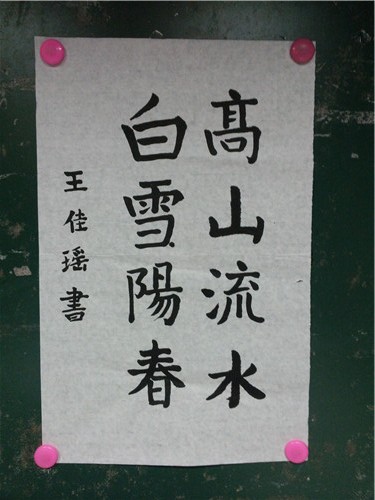 髙山流水
白雪陽春
王佳瑶書